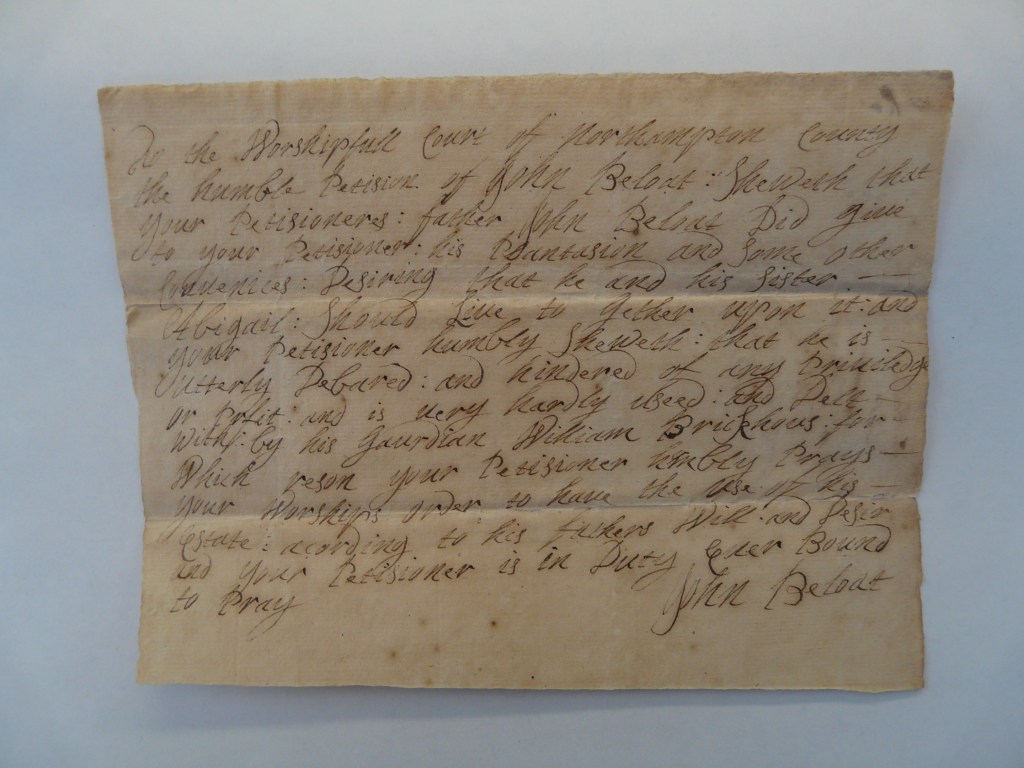 To the Worshipfull Court of Northampton County
the humble Petision of John Beloat : Sheweth that
your Petisioneres : father John Beloat Did give
to your Petisioner : his Plantasion and some other
Conuenices : Desiring that he and his sister —
Abigail : should Liue to gether upon it : and
your Petisioner humbly Sheweth : that he is —
Utterly Debared : and hindered of any Priuiledge
or Prfit : and is uery hardly used : and Delt —
with : by his Gaurdian William Brickhous : for —
Which reson your Petisioner humbly Prays —
your Worships order to have the use of his —
Estate : acording to his fathers Will and Desir
and your Petisioner is in Duty Euer Bound
to Pray John Beloat